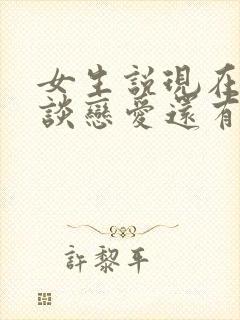 女生説現在
談戀愛還有
許黎平